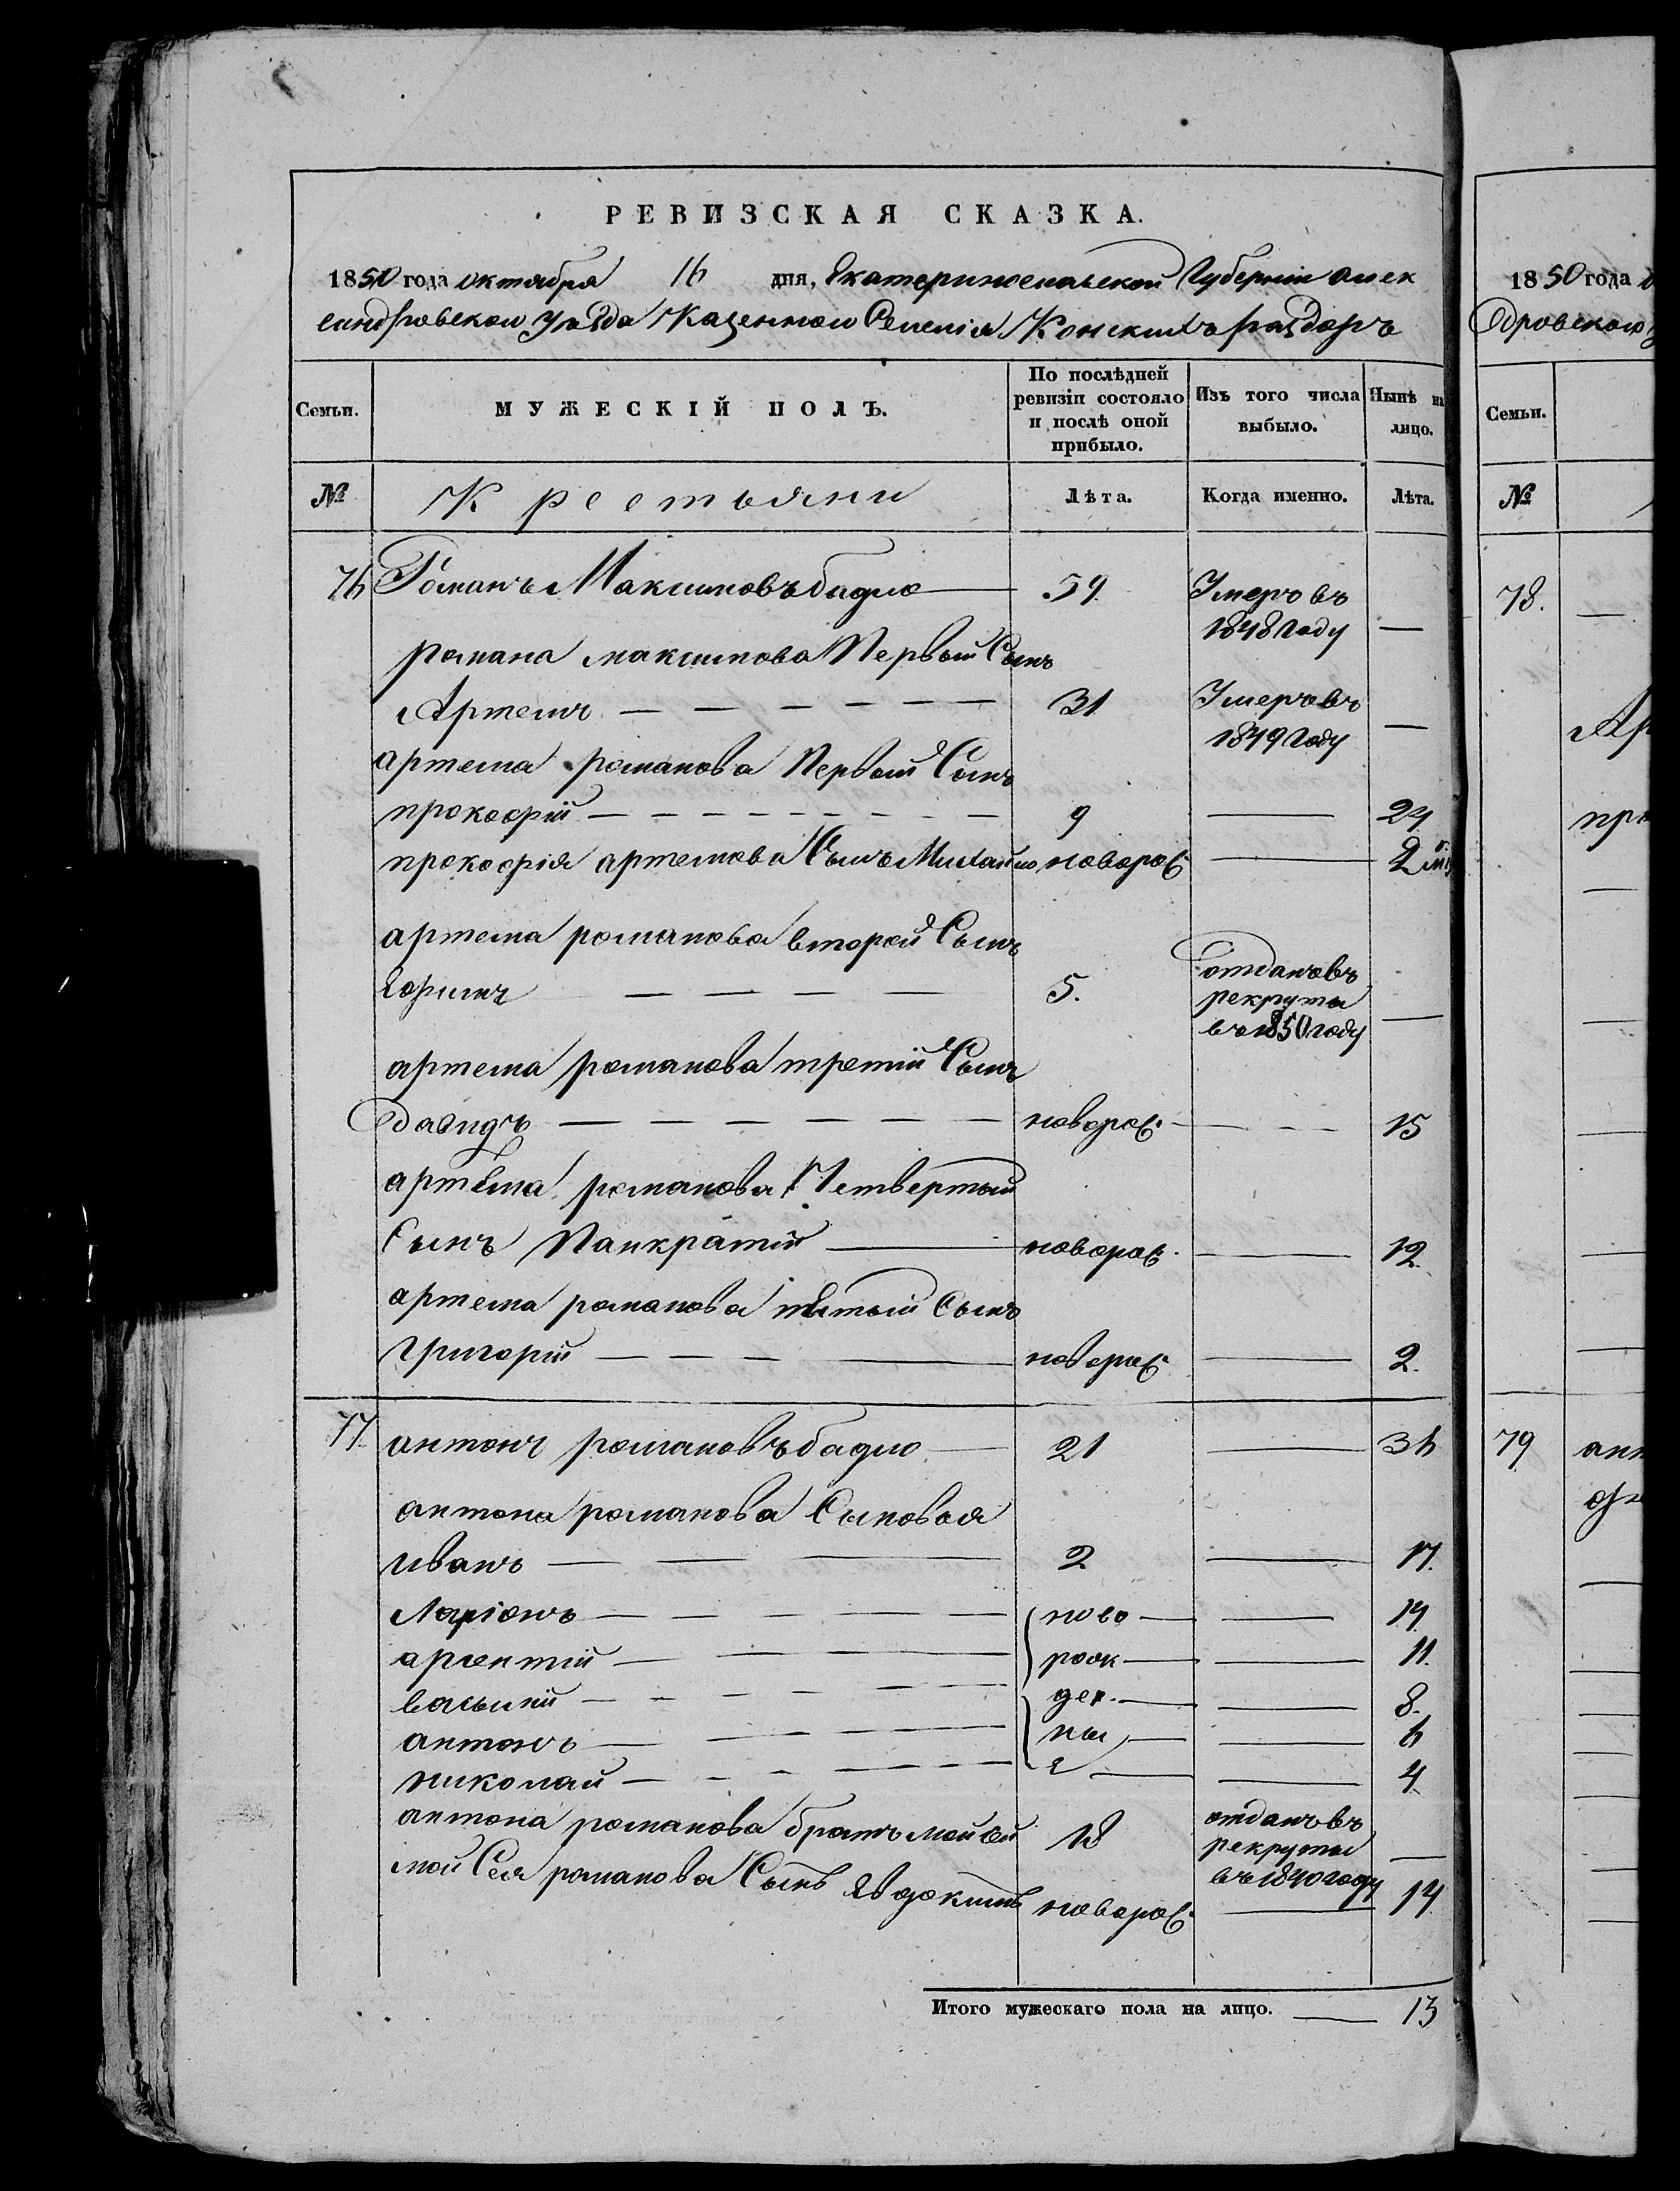 РЕВИЗСКАЯ СКАЗКА.
1850 года октября 16 дня, Екатеринославской Губернии Алек
сандровского уезда Казенного Селения Конских раздоръ
Семьи. МУЖЕСКІЙ ПОЛЪ. По послѣдней ревизіи состояло и послѣ оной прибыло. Изъ того числа выбыло. Нынѣ на лицо.
№ Крестьяни Лѣта. Когда именно. Лѣта.
76 Романъ Максимовъ бадло 59 Умеръ въ 1848 году —
романа максимова Первый Сынъ
Артемъ 31 Умеръ въ 1849 году —
артема романова Первый Сынъ
прокофій 9 — 24
прокофія артемова Сынъ Михайло новорож — 2 мѣ
артема романова второй Сынъ
Ефимъ 5. отданъ въ рекруты въ 1850 году —
артема романова третій Сынъ
давидъ новорож — 15
артема романова Четвертый
Сынъ Панкратій новорож — 12
артема романова пятый Сынъ
григорій новорож — 2.
77 антонъ романовъ бадло 21 — 36
антона романова Сыновья
иванъ 2 — 17.
Ларіонъ ново — 14
арсентій рож — 11.
васылій ден — 8.
антонъ ны — 6
николай е — 4
антона романова братъ мойсей 18 отданъ въ рекруты въ 1840 году —
мойсея романова Сынъ Явдокимъ новорож — 14
Итого мужескаго пола на лицо. 13
1850 года
дровского
Семьи.
№
78.
Ар
про
79 ант